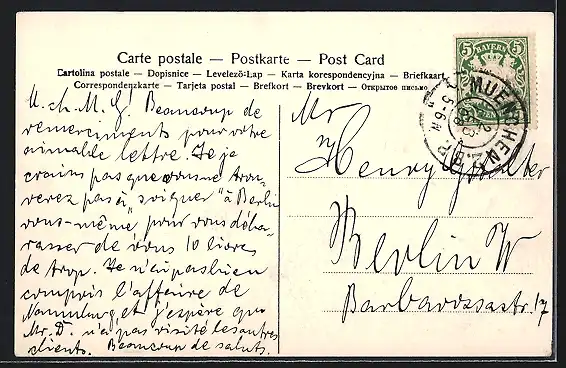 Carte postale — Postkarte — Post Card
Cartolina postale — Dopisnice — Levelező-Lap — Karta korespondencyjna — Briefkaart
Correspondenzkarte — Tarjeta postal — Brefkort — Brevkort — Открытое письмо
5 BAYERN 5
MUENCHEN
M. ch. M. G! Beaucoup de
remerciments pour votre
aimable lettre. Je
crains pas que vous ne trou-
verez pas à "soigner" à Berlin
vous-même pour vous déba-
rasser de vous 10 livres
de trop. Je n'ai pas bien
compris l'affaire de
Naumburg et j'espère que
Mr. D. n'a pas visité les autres
clients. Beaucoup de saluts.
Mr
Henry
Berlin W
Barbarossastr 17